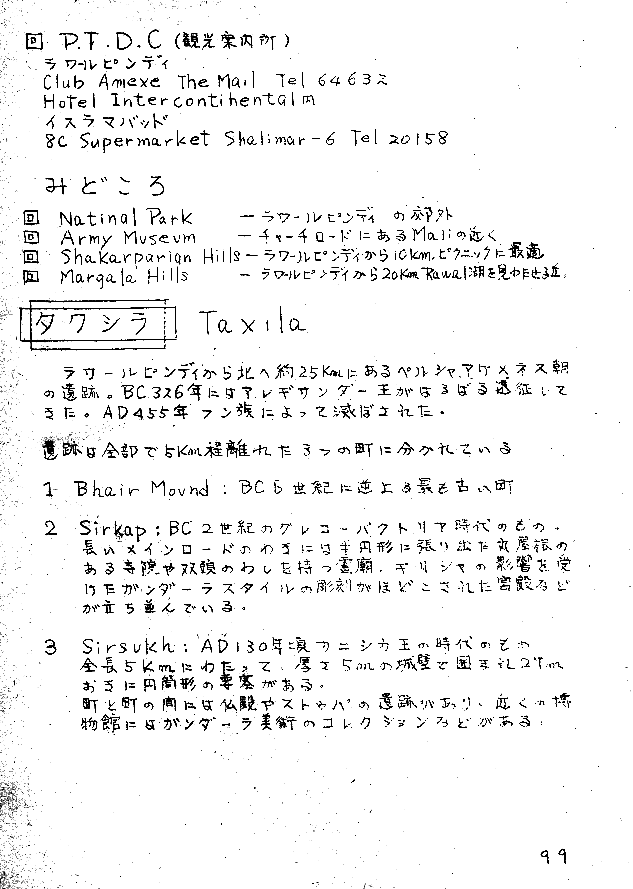 回 P.T.D.C (観光案内所)
ラワールピンディ
Club Amexe The Mail Tel 64632
Hotel Intercontihental内
イスラマバッド
8C Supermarket Shalimar-6 Tel 20158
みどころ
回 Natinal Park ーラワールピンディの郊外
回 Army Museum ーチャーチロードにあるMallの近く
回 Shakarparian Hillsーラワールピンディから10Km.ピクニックに最適
回 Margala Hills ーラワールピンディから20Km Rawal湖を見わたせる丘.
タクシラ Taxila
ラワールピンディから北へ約25Kmにあるペルシャ,アケメネス朝
の遺跡。BC326年にはアレギサンダー王がはるばる遠征して
きた。AD455年フン族によって滅ぼされた.
遺跡は全部で5Km程離れた3つの町に分かれている
1 Bhair Mound : BC6世紀に逆上る最も古い町
2 Sirkap : BC2世紀のグレコーバクトリア時代のもの.
長いメインロードのわきには半円形に張り出た丸屋根の
ある寺院や双頭のわしを持つ霊廟.ギリシャの影響を受
けたガンダーラスタイルの彫刻がほどこされた宮殿など
が立ち並んでいる.
3 Sirsukh : AD130年頃カニシカ王の時代のもの
全長5Kmにわたって、厚さ5mの城壁で囲まれ27m
おきに円筒形の要塞がある.
町と町の間には仏殿やストゥパの遺跡があり、近くの博
物館にはガンダーラ美術のコレクションなどがある.
99